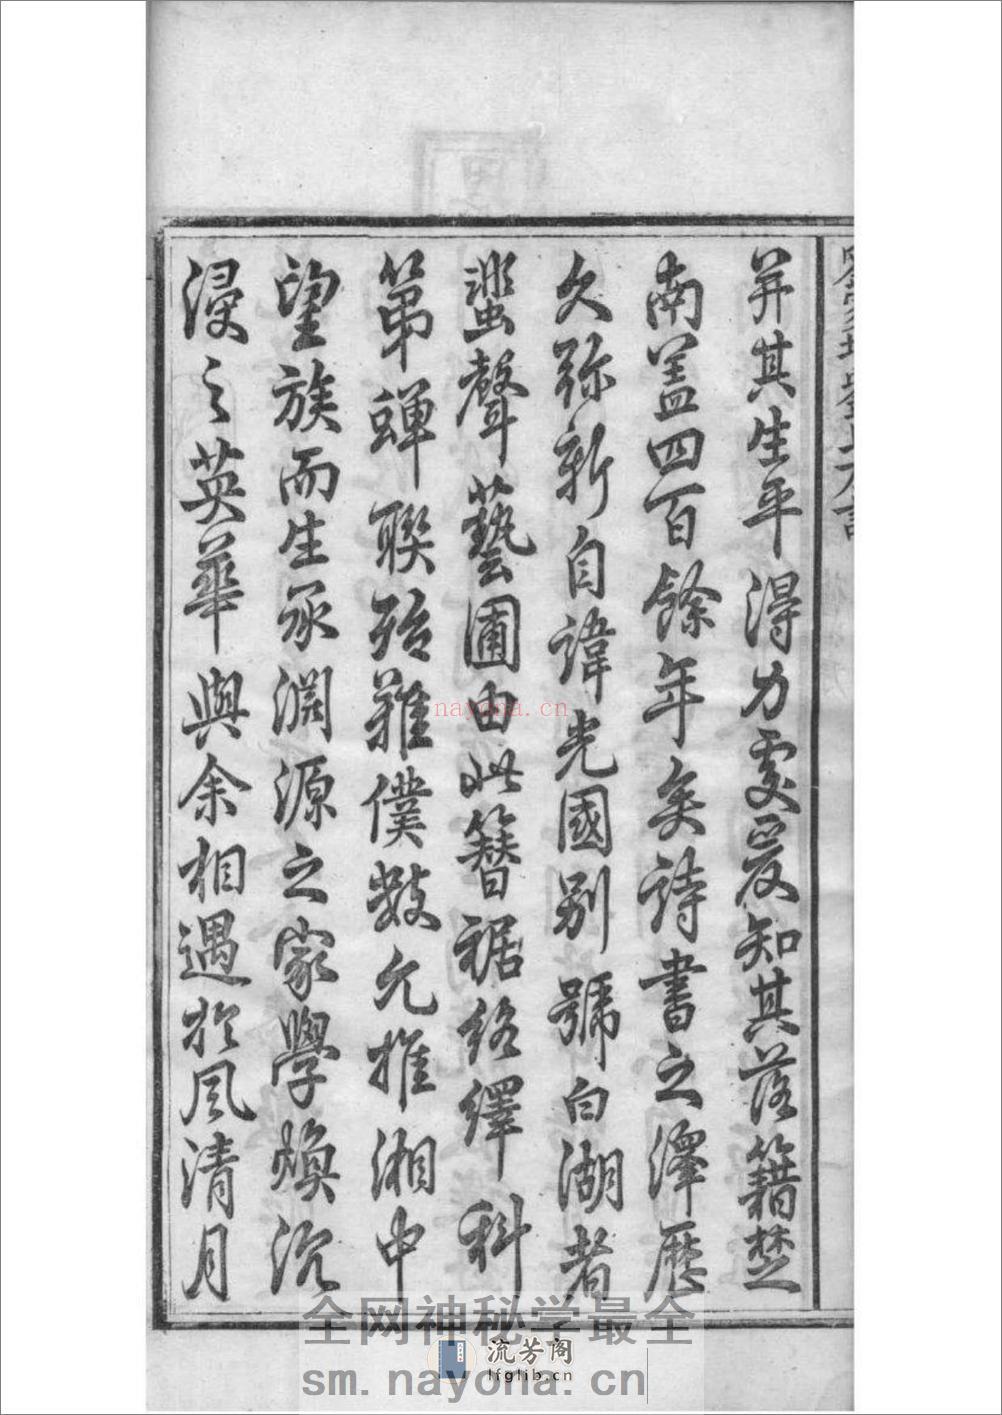 并其生平得力處爰知其落籍楚
南盖四百餘年矣詩書之澤歷
久弥新自諱光國别號白湖者
蜚聲藝圃由此簪裾絡繹科
第蟬聯殆難僕數允推湘中
望族而生承淵源之家學煥沉
浸之英華與余相遇於風清月
nayona.cn
全网神秘学最全
流芳阁
lfglib.cn
sm.nayona.cn